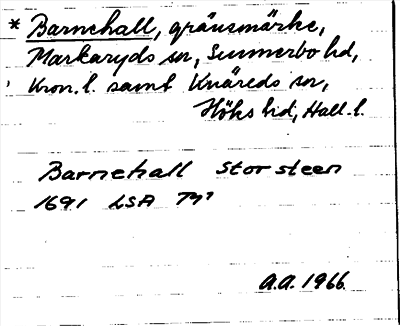 * Barnehall, gränsmärke,
Markaryds sn, Sunnerbo hd,
Kron. l. samt Knäreds sn,
Höks hd, Hall. l.
Barnehall Stor steen
1691 LSA
A.A. 1966